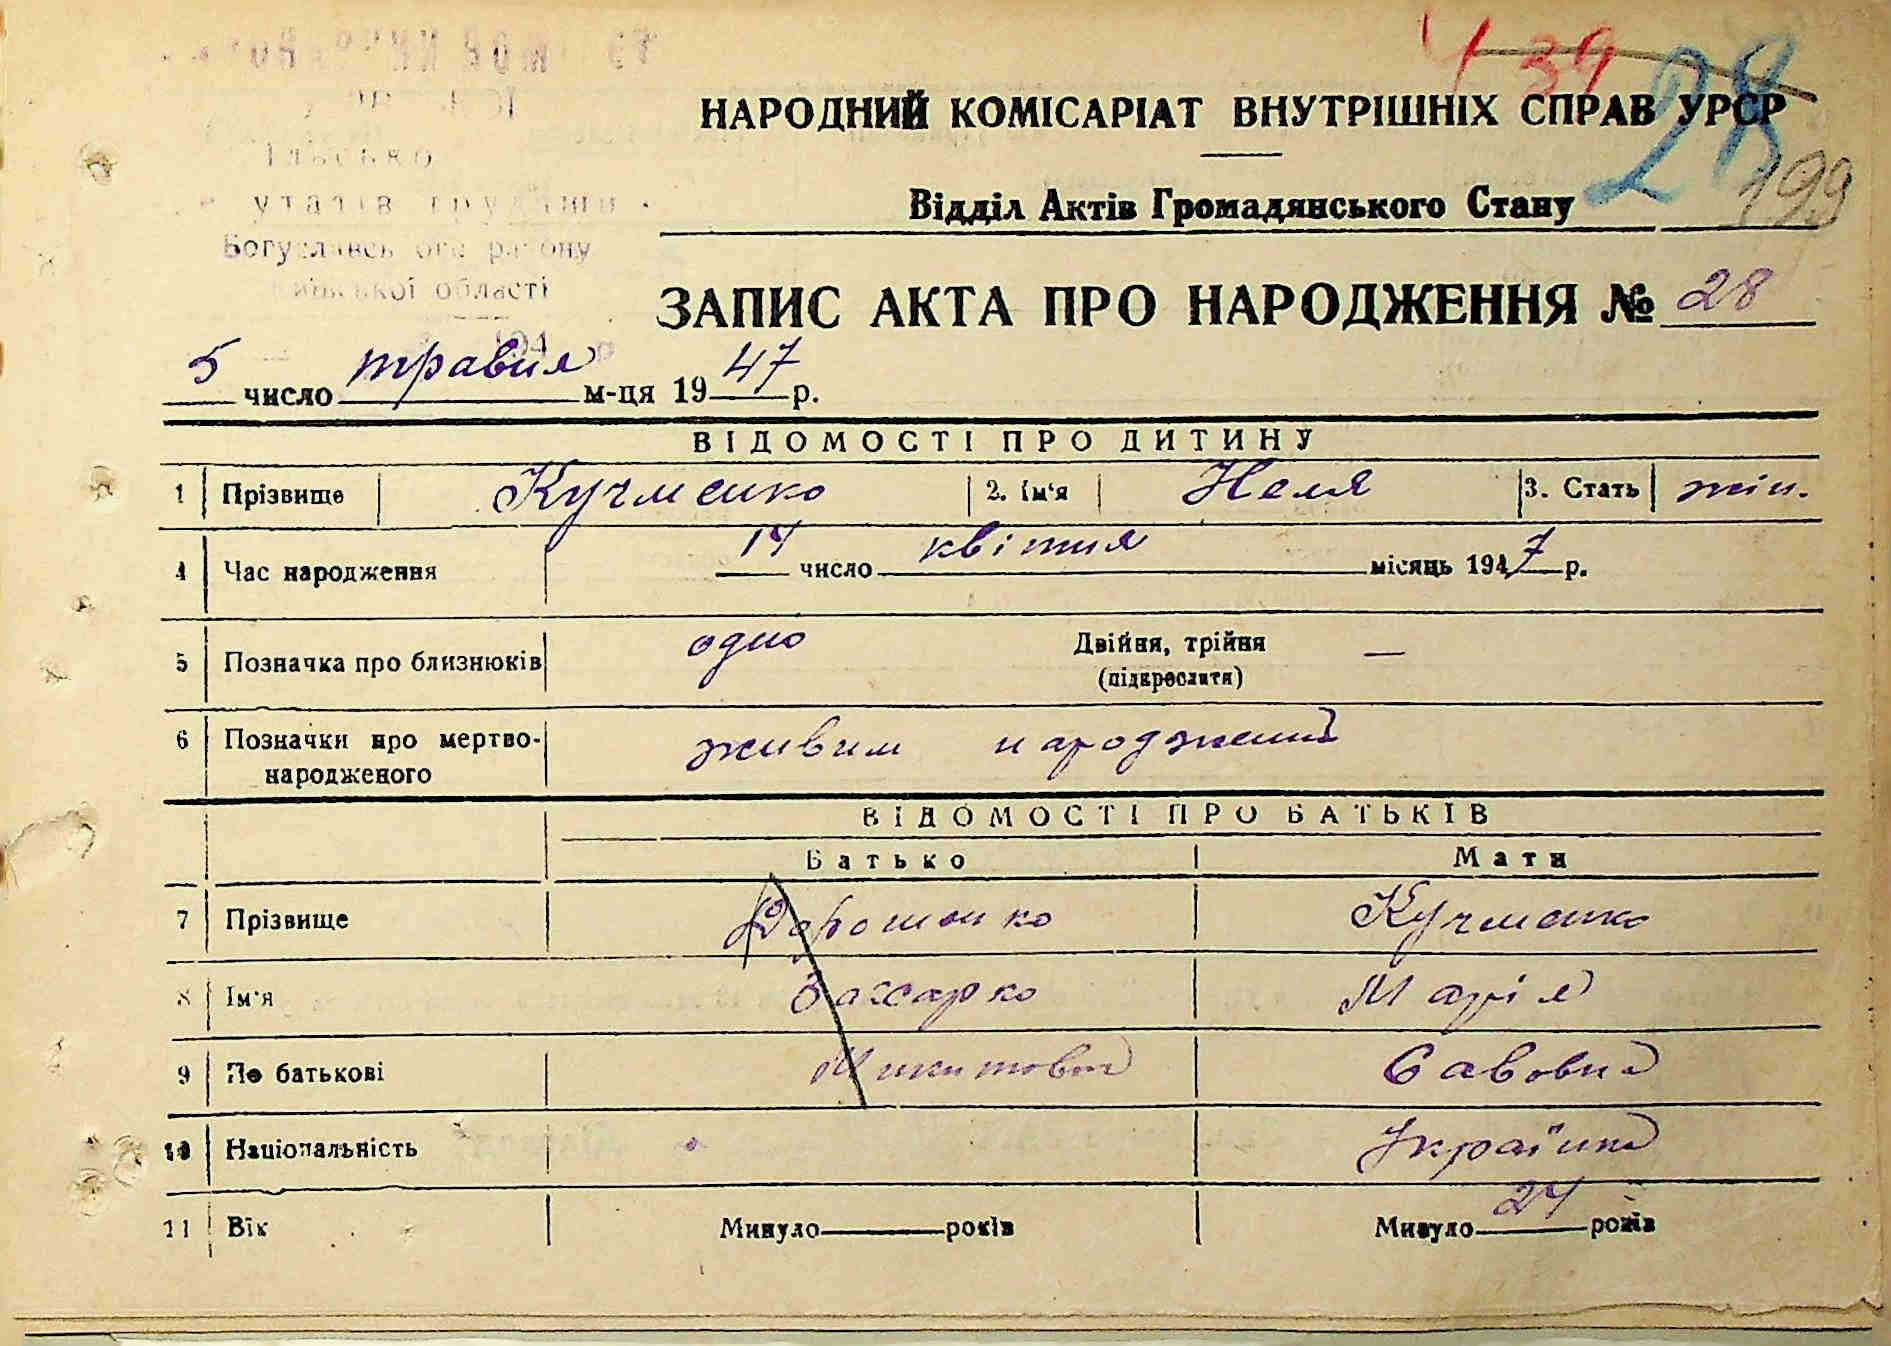 439
28
199
НАРОДНИЙ КОМІСАРІАТ ВНУТРІШНІХ СПРАВ УРСР
Відділ Актів Громадянського Стану
Богуславського району
Київської області
ЗАПИС АКТА ПРО НАРОДЖЕННЯ № 28
5 число травня м-ця 1947 р.
ВІДОМОСТІ ПРО ДИТИНУ
1 Прізвище Кучменко 2. Ім'я Неля 3. Стать жін.
4 Час народження 14 число квітня місяць 1947 р.
5 Позначка про близнюків одно Двійня, трійня —
(підкреслити)
6 Позначки про мертво-
народженого живим народжений
ВІДОМОСТІ ПРО БАТЬКІВ
Батько Мати
7 Прізвище Дорошенко Кучменко
8 Ім'я Захарко Марія
9 По батькові Микитович Савовна
10 Національність Українка
11 Вік Минуло років Минуло 24 років